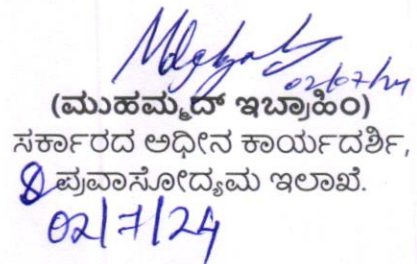 02/07/24
(ಮುಹಮ್ಮದ್ ಇಬ್ರಾಹಿಂ)
ಸರ್ಕಾರದ ಅಧೀನ ಕಾರ್ಯದರ್ಶಿ,
ಪ್ರವಾಸೋದ್ಯಮ ಇಲಾಖೆ.
02/7/24